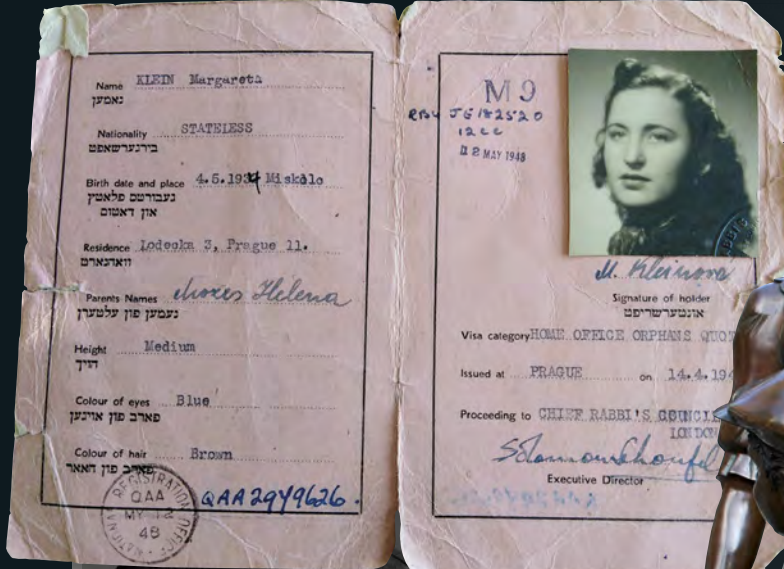 Name KLEIN Margareta
נאמען
Nationality STATELESS
בירגערשאפט
Birth date and place 4.5.1934 Miskolc
געבורטס פלאטץ
און דאטום
Residence Lodecka 3, Prague 11.
וואהנארט
Parents Names Helena
נעמען פון עלטערן
Height Medium
הויך
Colour of eyes Blue
פארב פון אויגען
Colour of hair Brown
פארב פון האאר
REGISTRATION OFFICE NATIONAL
QAA
MY 12
48
QAA2949626.
M 9
12 MAY 1948
M. Kleinova
Signature of holder
אונטערשריפט
Visa category HOME OFFICE ORPHANS QUO
Issued at PRAGUE on 14.4.194
Proceeding to CHIEF RABBI'S COUNCI
LONDO
Executive Director